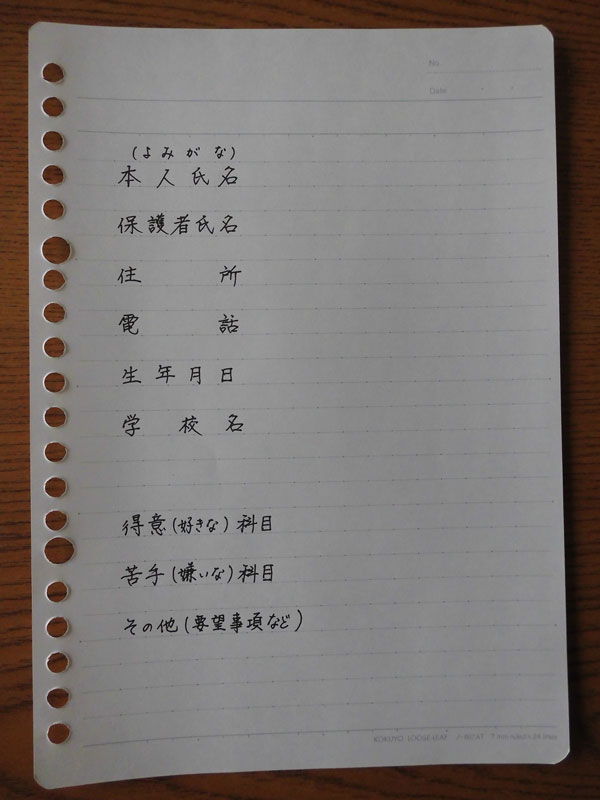 No.
Date
(よみがな)
本人氏名
保護者氏名
住 所
電 話
生年月日
学 校 名
得意(好きな)科目
苦手(嫌いな)科目
その他(要望事項など)
KOKUYO LOOSE-LEAF